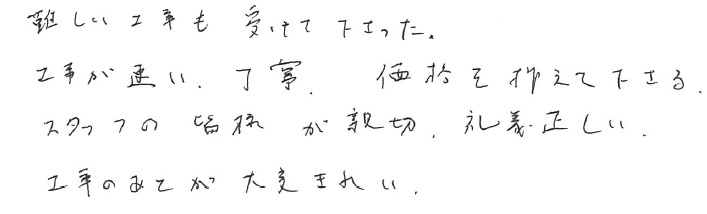 難しい工事も受けて下さった.
工事が速い. 丁寧. 価格を抑えて下さる.
スタッフの皆様が親切. 礼義正しい.
工事のあとが大変きれい.